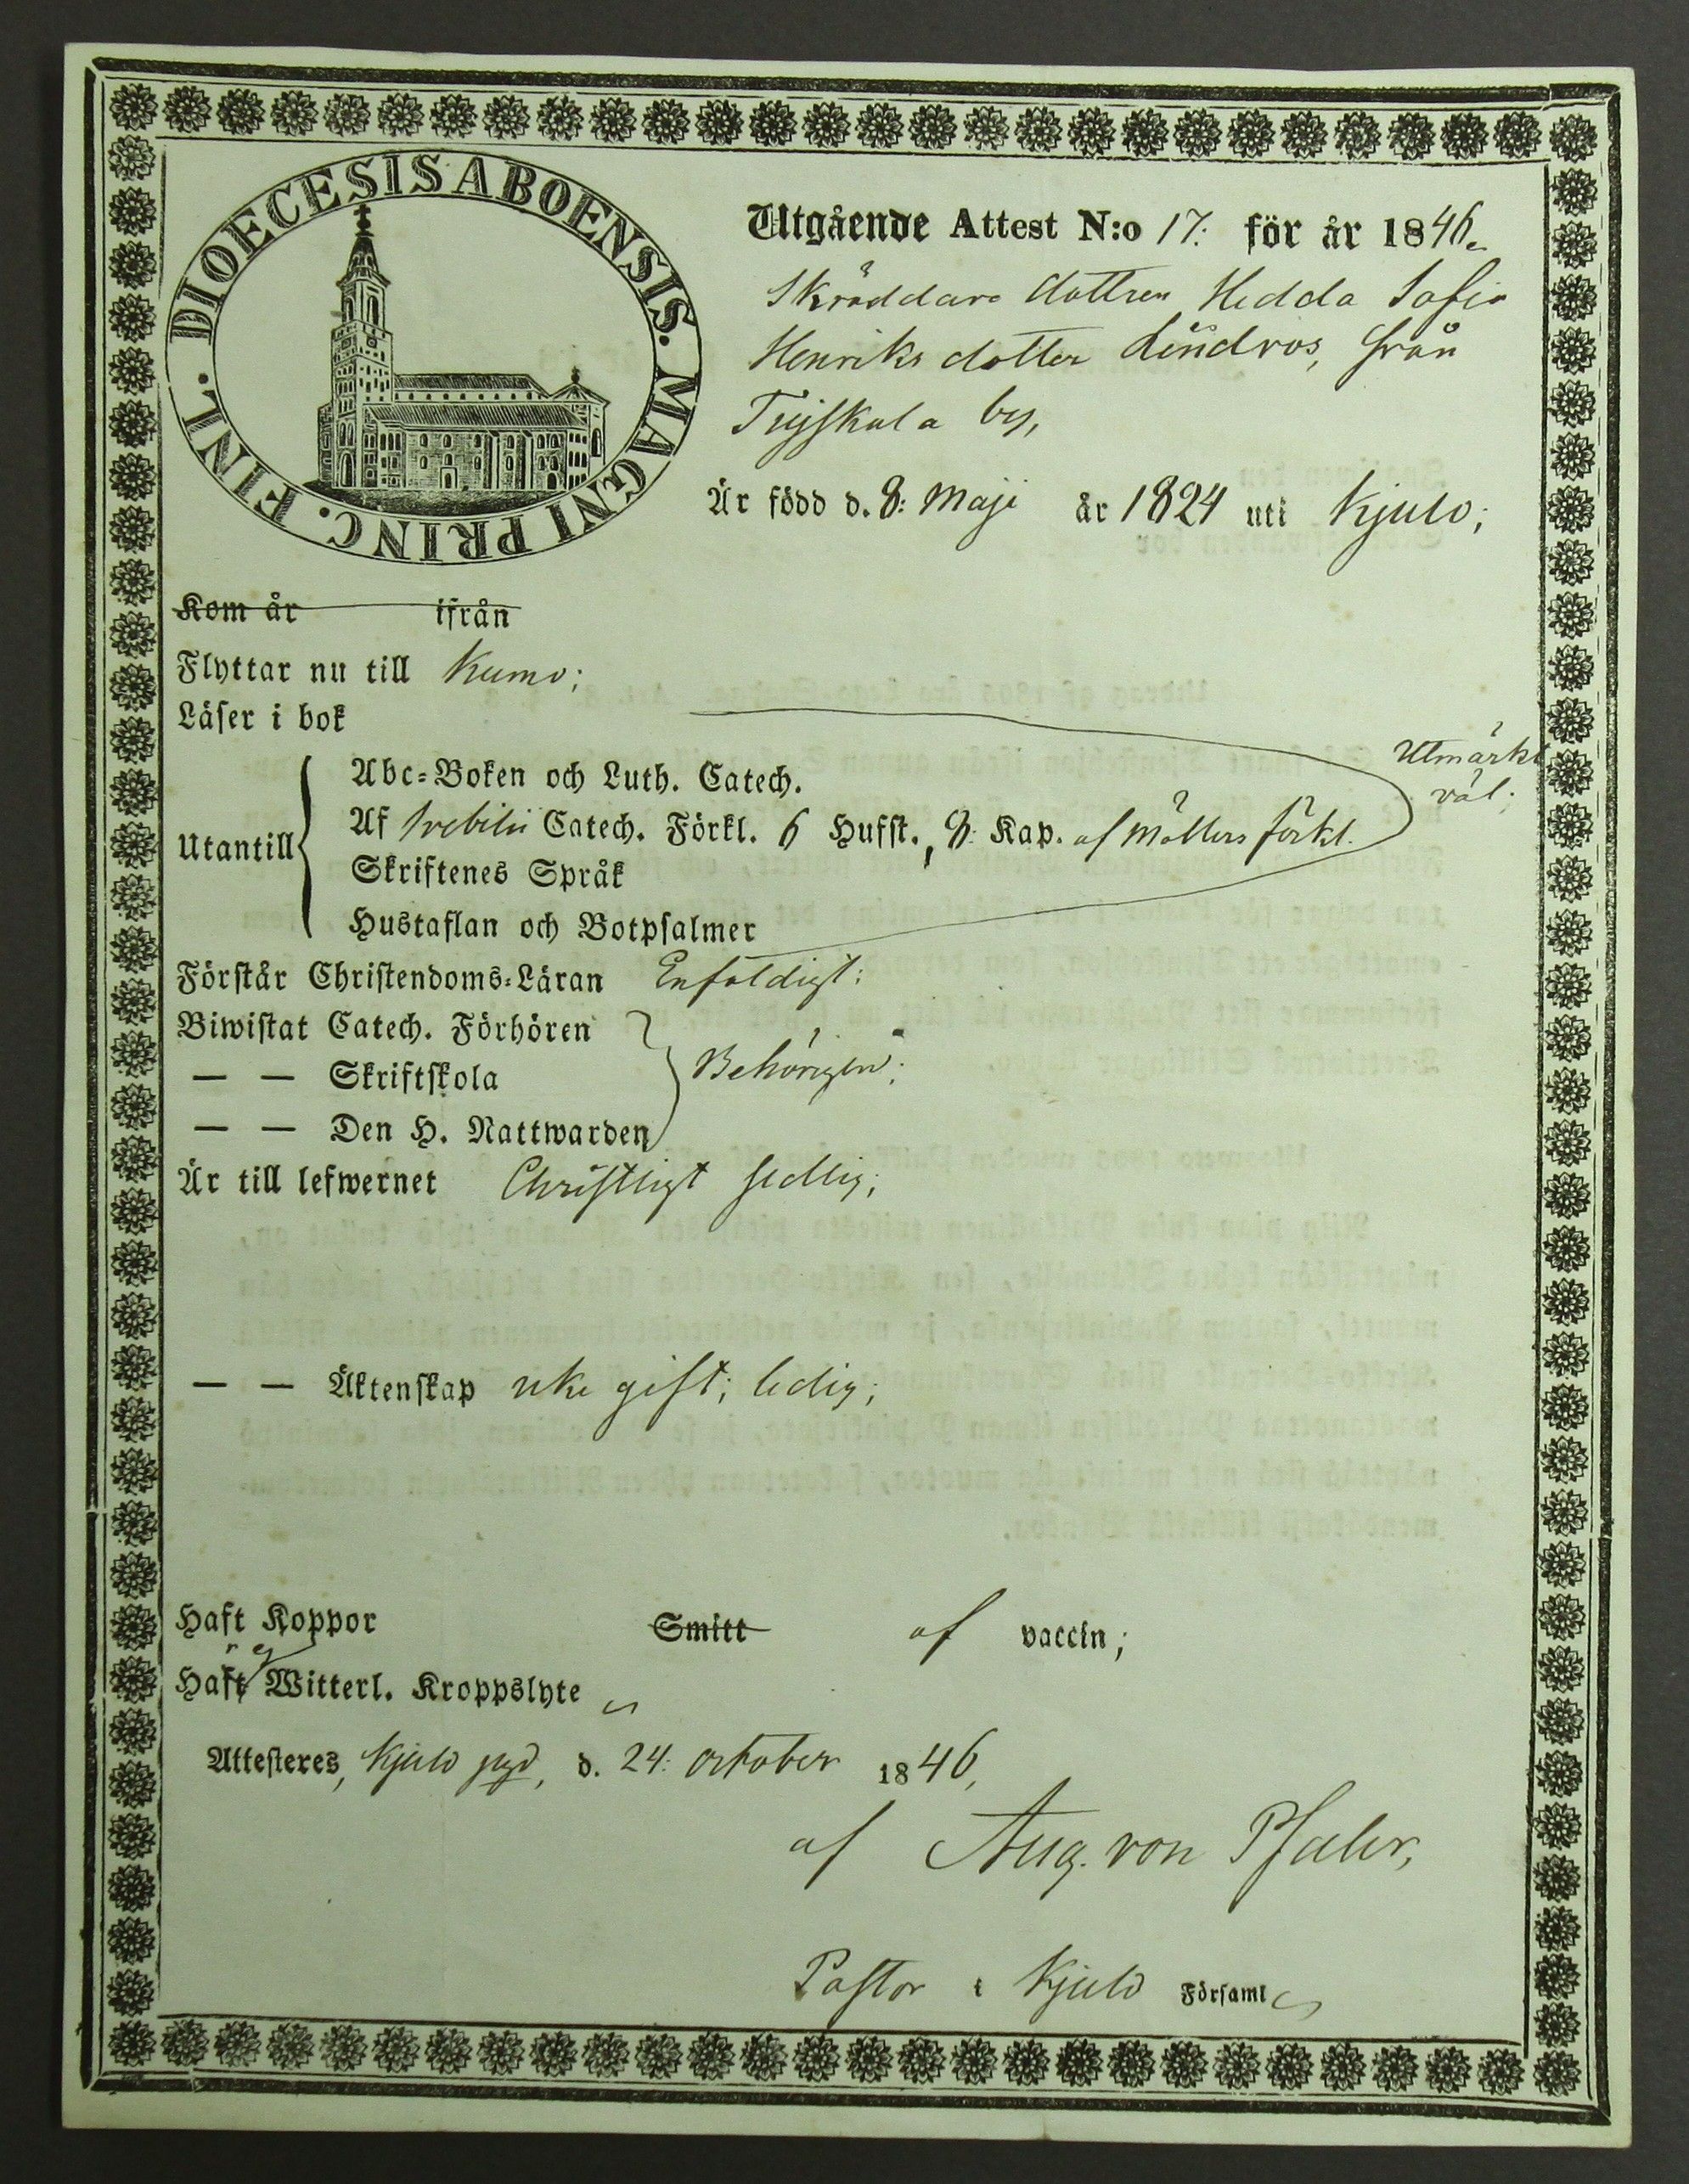 DIOECESIS ABOENSIS. MAGNI PRINC. FINL.
Utgående Attest N:o 17: för år 1846.
Skräddare dottren Hedda Sofia
Henriks dotter Lindros, från
by,
Är född d. 8: Maji år 1824 uti Kjulo;
Kom år ifrån
Flyttar nu till Kumo;
Läser i bok
Utmärkt
väl;
Abc-Boken och Luth. Catech.
Utantill Af Svebilii Catech. Förkl. 6 Hufst., 8: Kap. af Möllers förkl.
Skriftenes Språk
Hustaflan och Botpsalmer
Förstår Christendoms-Läran Enfaldigt:
Biwistat Catech. Förhören
— — Skriftskola Behörigen;
— — Den H. Nattwarden
Är till lefwernet Christligt sedlig;
— — Äktenskap icke gift; ledig;
Haft Koppor Smitt af vaccin;
Haft ej Witterl. Kroppslyte
Attesteres, Kjulo, d. 24: october 1846,
af Aug. von Pfaler,
Pastor i Kjulo Församl